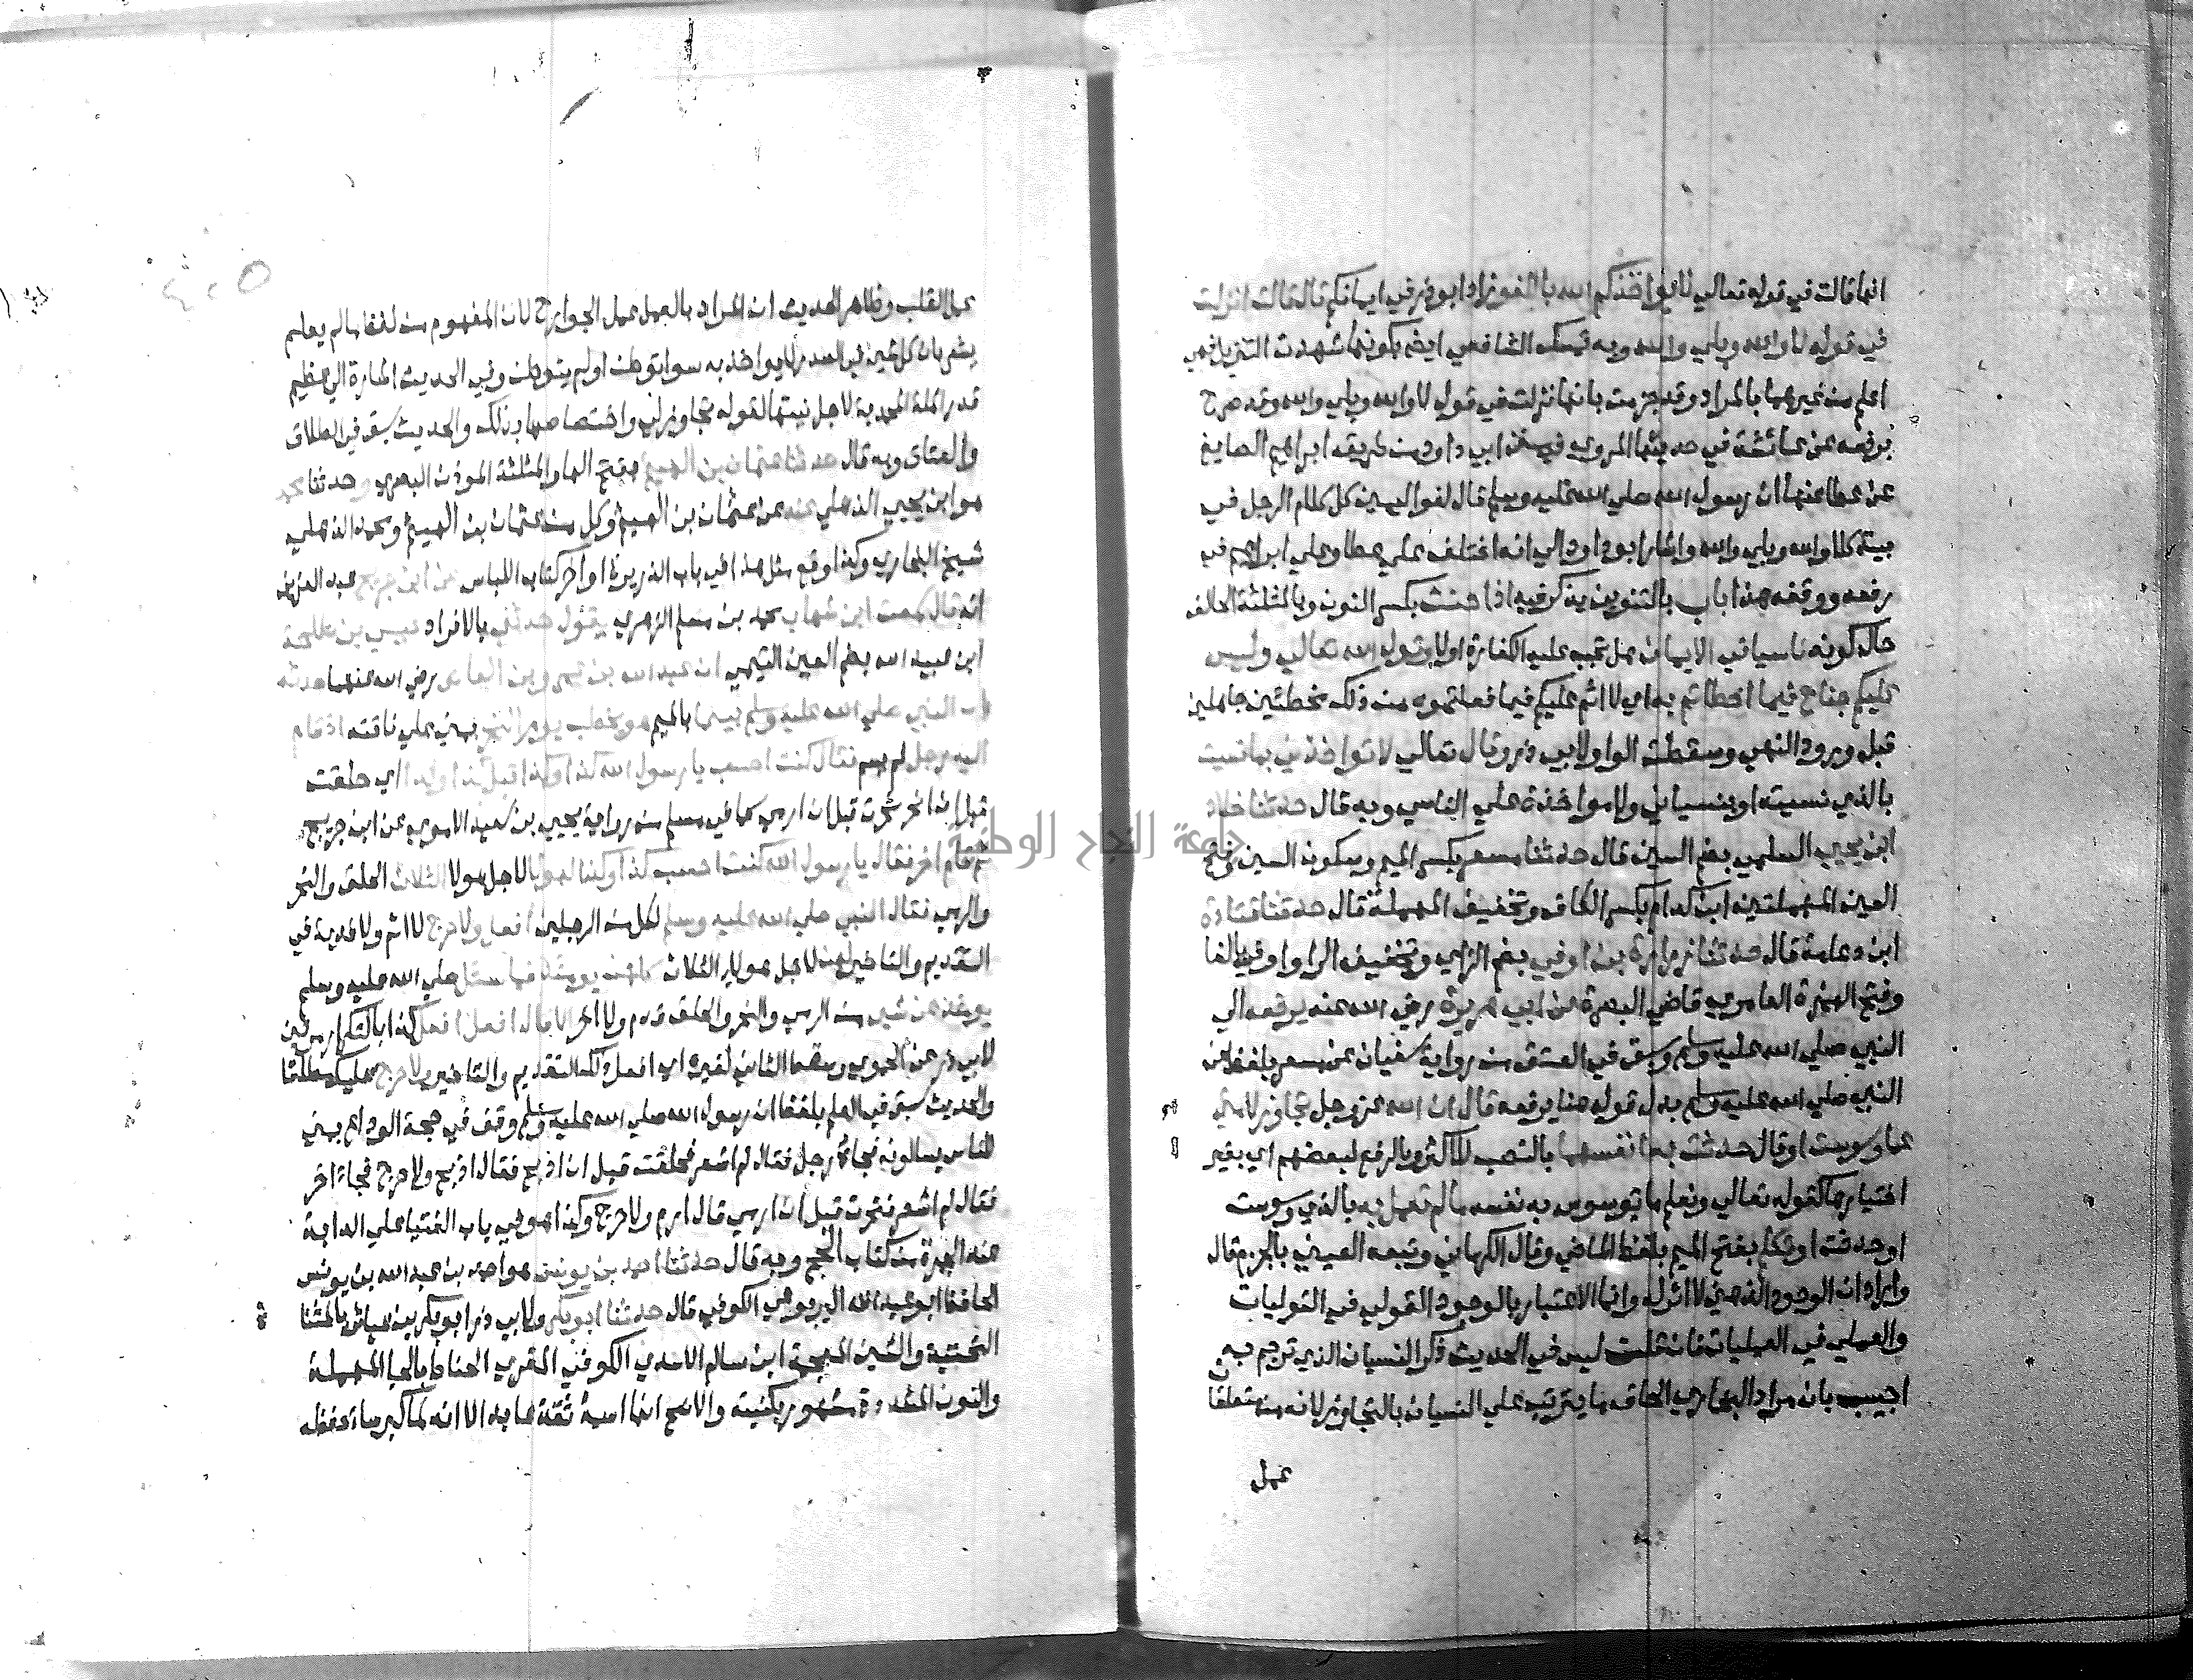 انها قالت في قوله تعالى لا يؤاخذكم الله باللغو زاد ابوذر في ايمانكم قال قالت انزلت
في قوله لا والله وبلى والله وبه تمسك الشافعي ايضا بكونها شهدت التنزيل فهي
اعلم من غيرهما بالمراد وقد جزمت بانها نزلت في قوله لا والله وبلى والله وقد صرح
برفعه عن عائشة في حديثها المروي في سنن ابي داود من طريق ابراهيم الصايغ
عن عطا عنها ان رسول الله صلي الله عليه وسلم قال لغو اليمين كل كلام الرجل في
بيته كلا والله وبلي والله واشار ابو داود الي انه اختلف علي عطا وعلي ابراهيم في
رفعه ووقفه هذا باب بالتنوين يذكر فيه اذا حنث بكسر النون وبالمثلثة الحالف
حال كونه ناسيا في الايمان هل تجب عليه الكفارة او لا وقول الله تعالى وليس
عليكم جناح فيما اخطاتم به اي لا اثم عليكم فيما فعلتموه من ذلك مخطئين جاهلين
قبل ورود النهي وسقطت الواو لابي ذر وقال تعالي لا تواخذني بما نسيت
بالذي نسيته او بنسياني ولا مواخذة علي الناسي وبه قال حدثنا خلاد
ابن يحيي السلمي بضم السين قال حدثنا مسعر بكسر الميم وسكون السين وفتح
العين المهملتين ابن كدام بكسر الكاف وتخفيف المهملة قال حدثنا قتادة
ابن دعامة قال حدثنا زرارة بن اوفي بضم الزاي وتخفيف الرا واوفي بالفا
وفتح الهمزة العامري قاضي البصرة عن ابي هريرة رضي الله عنه يرفعه الي
النبي صلي الله عليه وسلم وسبق في العتق من رواية سفيان عن مسعر بلفظ عن
النبي صلي الله عليه وسلم بدل قوله هنا يرفعه قال ان الله عز وجل تجاوز لامتي
عما وسوست او قال حدثت به انفسها بالنصب للاكثر وبالرفع لبعضهم اي بغير
اختيارها كقوله تعالي ونعلم ما توسوس به نفسه ما لم تعمل به بالذي وسوست
او حدثت او تكلم بفتح الميم بلفظ الماضي وقال الكرماني وتبعه العيني بالجزم قال
واراد ان الوجود الذهني لا اثر له وانما الاعتبار بالوجود القولي في القوليات
والعملي في العمليات فان قلت ليس في الحديث ذكر النسيان الذي ترجم به
اجيب بان مراد البخاري الحاق ما يترتب علي النسيان بالتجاوز لانه من متعلقات
عمل
عمل القلب وظاهر الحديث ان المراد بالعمل عمل الجوارح لان المفهوم من لفظ ما لم يعمل
يشعر بان كل شي في الصدر لا يواخذ به سوا توطن او لم يتوطن وفي الحديث اشارة الي عظيم
قدر الامة المحمدية لاجل نبيها لقوله تجاوز لي واختصاصها بذلك والحديث سبق في الطلاق
والعتاق وبه قال حدثنا عثمان بن الهيثم بفتح الها والمثلثة الموذن البصري حدثنا محمد
هو ابن يحيي الذهلي عنه عن عثمان بن الهيثم وكل من عثمان بن الهيثم ومحمد الذهلي
شيخ البخاري وكذا وقع مثل هذا في باب الذريرة اواخر كتاب اللباس عن ابن جريج عبد العزيز
انه قال سمعت ابن شهاب محمد بن مسلم الزهري يقول حدثني بالافراد عيسي بن طلحة
ابن عبيد الله بضم العين التيمي ان عبد الله بن عمرو بن العاص رضي الله عنهما حدثه
ان النبي صلي الله عليه وسلم بينما بالميم هو يخطب يوم النحر بمني علي ناقته اذ قام
اليه رجل لم يسم فقال كنت احسب يا رسول الله كذا وكذا قبل كذا وكذا اي حلقت
قبل ان انحر نحرت قبل ان ارمي كما في مسلم من رواية يحيي بن سعيد الاموي عن ابن جريج
ثم قام اخر فقال يا رسول الله كنت احسب كذا وكذا لهولا لاجل هولا الثلاث الحلق والنحر
والرمي فقال النبي صلي الله عليه وسلم لكل من الرجلين افعل ولا حرج لا اثم ولا فدية في
التقديم والتاخير لهن لاجل هولا الثلاث كلهن يومئذ فما سئل صلي الله عليه وسلم
يومئذ عن شي من الرمي والنحر والحلق قدم ولا اخر الا قال افعل افعل كذا بالتكرار مرتين
لابي ذر عن الحموي وسقط الثاني لغيره اي افعل ذلك التقديم والتاخير ولا حرج عليك مطلقا
والحديث سبق في العلم بلفظ ان رسول الله صلي الله عليه وسلم وقف في حجة الوداع بمني
للناس يسالونه فجاه رجل فقال لم اشعر فحلقت قبل ان اذبح فقال اذبح ولا حرج فجاء اخر
فقال لم اشعر فنحرت قبل ان ارمي قال ارم ولا حرج وكذا هو في باب الفتيا علي الدابة
عند الجمرة من كتاب الحج وبه قال حدثنا احمد بن يونس هو احمد بن عبد الله بن يونس
الحافظ ابو عبد الله اليربوعي الكوفي قال حدثنا ابوبكر ولابي ذر ابو بكر بن عياش بالمثناة
التحتية والشين المعجمة ابن سالم الاسدي الكوفي المقري الحناط بالحا المهملة
والنون المشددة مشهور بكنيته والاصح انها اسمه ثقة عابد الا انه لما كبر ساء حفظه
جامعة النجاح الوطنية